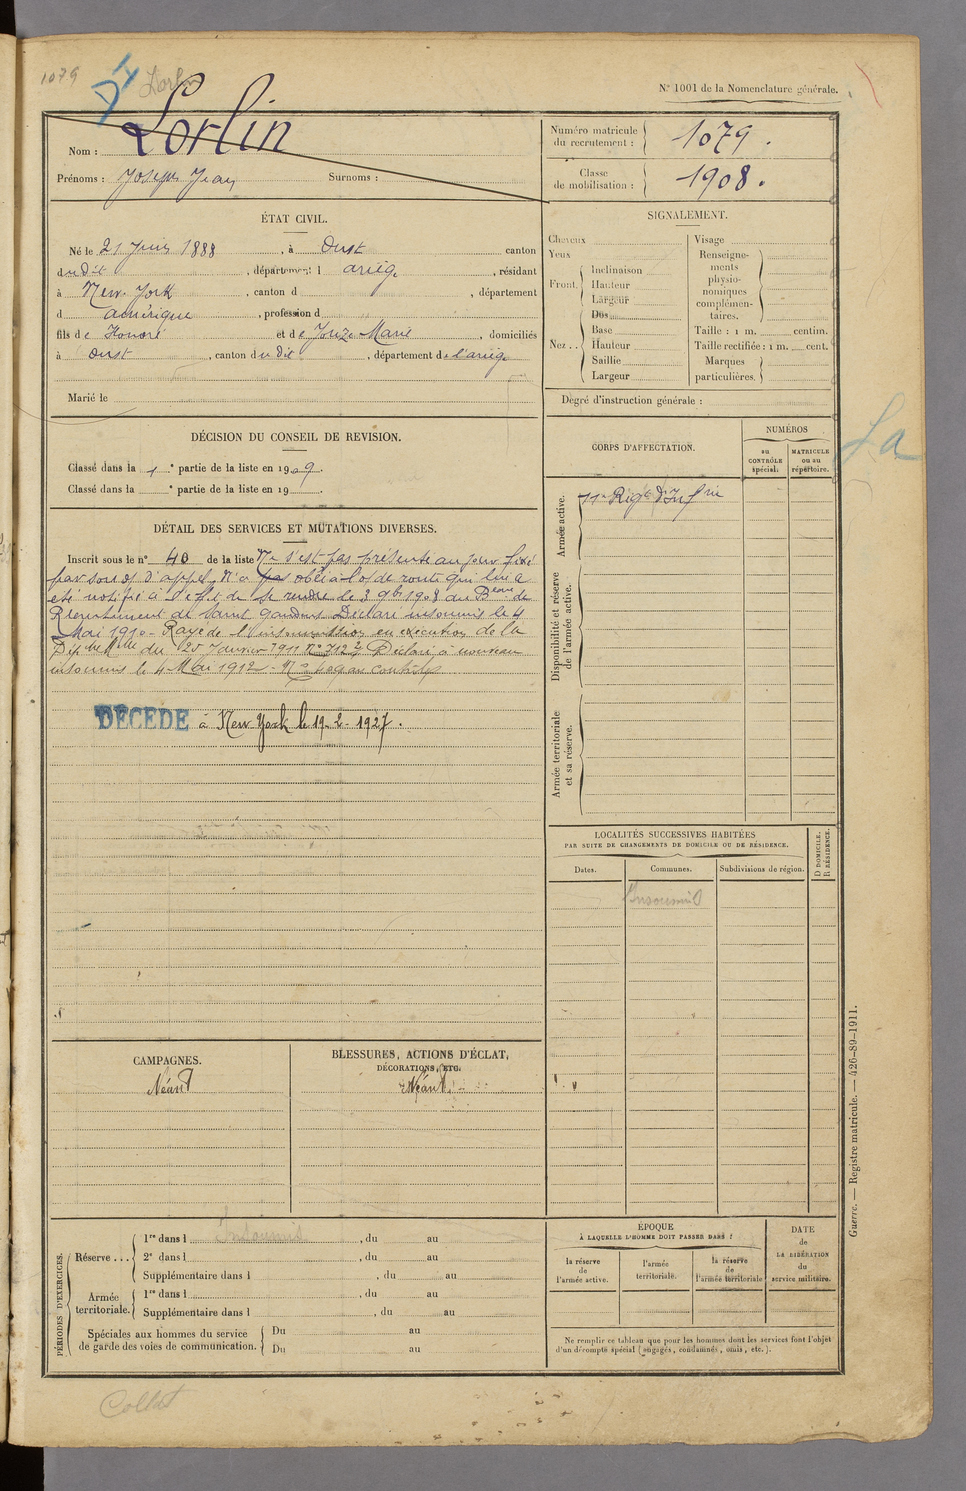 1079
Lorlin
N° 1001 de la Nomenclature générale.
Nom : Lorlin
Prénoms : Joseph Jean Surnoms :
Numéro matricule du recrutement : 1079.
Classe de mobilisation : 1908.
ÉTAT CIVIL.
Né le 21 Juin 1888, à Oust canton
dudit, département d ariège, résidant
à New York, canton d , département
d amérique, profession d
fils de Honoré et de Jouze Marie, domiciliés
à Oust, canton dudit, département de l'ariège
Marié le
SIGNALEMENT.
Cheveux
Yeux
Front. Inclinaison
Hauteur
Largeur
Nez .. Dos
Base
Hauteur
Saillie
Largeur
Visage
Renseignements physionomiques complémentaires.
Taille : 1 m. centim.
Taille rectifiée : 1 m. cent.
Marques particulières.
Degré d'instruction générale :
DÉCISION DU CONSEIL DE REVISION.
Classé dans la 1e partie de la liste en 1909.
Classé dans la e partie de la liste en 19 .
DÉTAIL DES SERVICES ET MUTATIONS DIVERSES.
Inscrit sous le n° 40 de la liste Ne s'est pas présenté au jour fixé
par son o/ d'appel, N'a pas obéi à l'o/ de route qui lui a
été notifié à l'effet de se rendre le 3 9bre 1908 au Beau de
Recrutement de Saint Gaudens Déclaré insoumis le 4
Mai 1910 - Rayé de l'insoumission en exécution de la
Dép. Mlle du 25 Janvier 1911 N° 7122 Déclaré à nouveau
insoumis le 4 Mai 1912 - N°
DÉCÉDÉ à New York le 19-2-1927.
CORPS D'AFFECTATION.
NUMÉROS
au CONTRÔLE spécial.
MATRICULE ou au répertoire.
Armée active.
11e Régt d'Infrie
Disponibilité et réserve de l'armée active.
Armée territoriale et sa réserve.
La
LOCALITÉS SUCCESSIVES HABITÉES
PAR SUITE DE CHANGEMENTS DE DOMICILE OU DE RÉSIDENCE.
Dates.
Communes.
Subdivisions de région.
D DOMICILE, R RÉSIDENCE.
Insoumis
CAMPAGNES.
Néant
BLESSURES, ACTIONS D'ÉCLAT,
DÉCORATIONS, ETC.
Néant
PÉRIODES D'EXERCICES.
Réserve ... 1re dans l Insoumis , du au
2e dans l , du au
Supplémentaire dans l , du au
Armée territoriale. 1re dans l , du au
Supplémentaire dans l , du au
Spéciales aux hommes du service de garde des voies de communication. Du au
Du au
ÉPOQUE
À LAQUELLE L'HOMME DOIT PASSER DANS :
la réserve de l'armée active.
l'armée territoriale.
la réserve de l'armée territoriale
DATE de LA LIBÉRATION du service militaire.
Ne remplir ce tableau que pour les hommes dont les services font l'objet
d'un décompte spécial (engagés, condamnés, omis, etc.).
Guerre. — Registre matricule. — 426-89-1911.